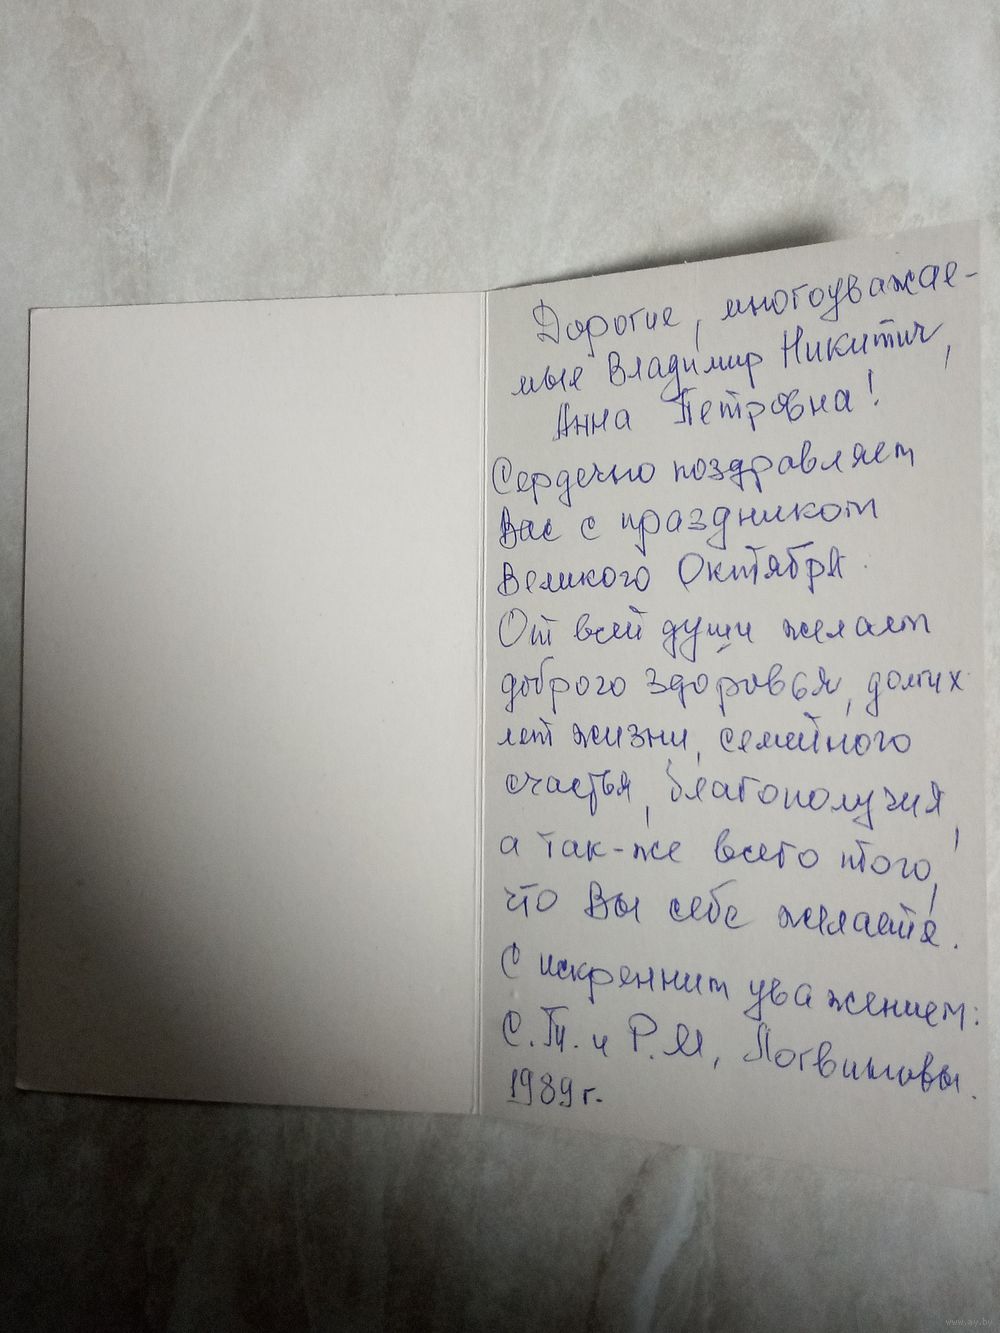 Дорогие, многоуважае-
мые Владимир Никитич,
Анна Петровна!
Сердечно поздравляем
Вас с праздником
Великого Октября.
От всей души желаем
доброго здоровья, долгих
лет жизни, семейного
счастья, благополучия,
а так-же всего того,
что Вы себе желаете.
С искренним уважением:
С. и Р.М, Логвиновы.
1989 г.
www.ay.by